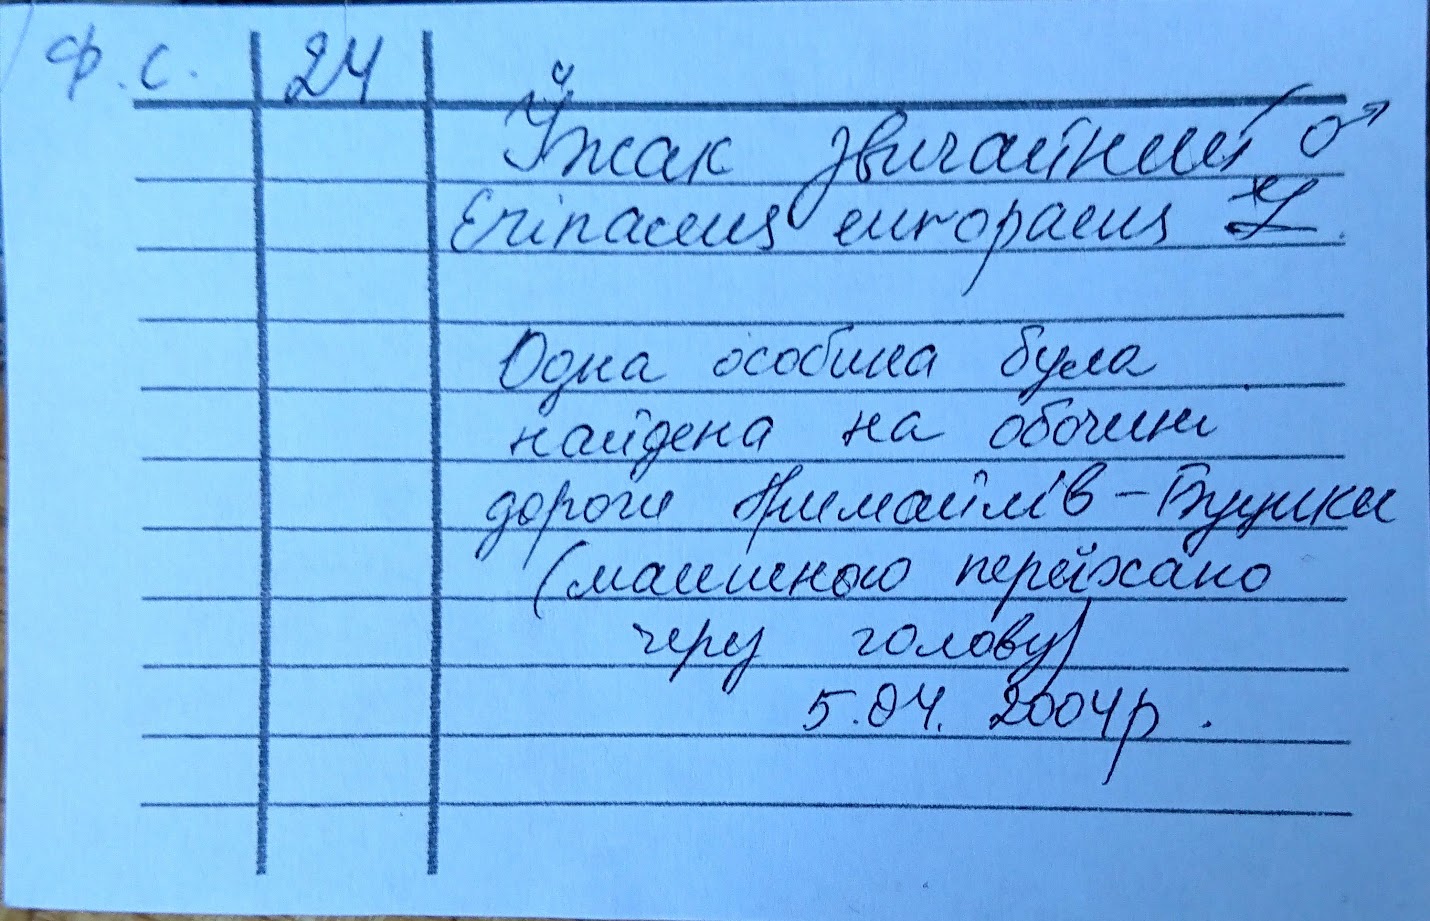 Ф.С. 24
Їжак звичайний ♂
Erinaceus europaeus L.
Одна особина була
найдена на обочині
дороги Гримайлів - Буцики
(машиною переїхано
через голову)
5.04.2004р.